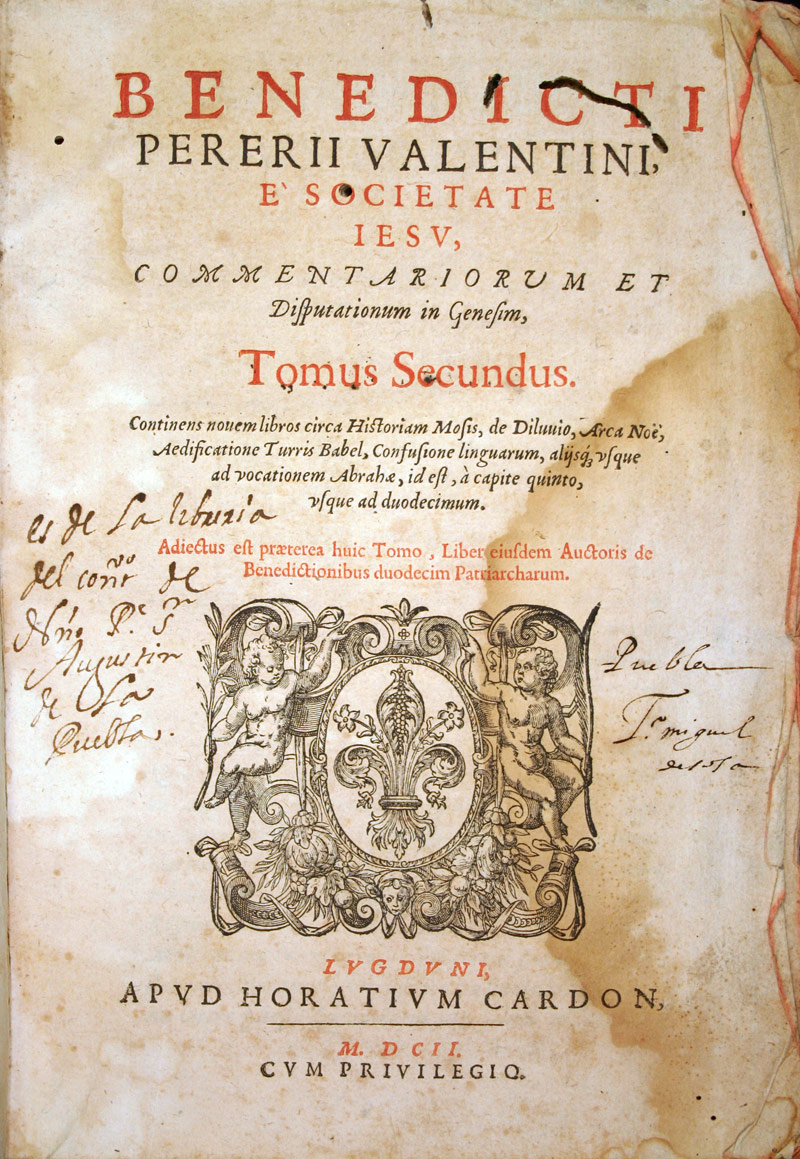 BENEDICTI
PERERII VALENTINI,
E' SOCIETATE
IESV,
COMMENTARIORUM ET
Disputationum in Genesim,
Tomus Secundus.
Continens nouem libros circa Historiam Mosis, de Diluuio, Arca Noë,
Aedificatione Turris Babel, Confusione linguarum, alijsq; vsque
ad vocationem Abrahæ, id est, à capite quinto,
vsque ad duodecimum.
Adiectus est præterea huic Tomo, Liber eiusdem Auctoris de
Benedictionibus duodecim Patriarcharum.
es de la libreria
del convto de
Pe Sn
Augustin
de La
Puebla.
Puebla
miguel
LVGDVNI,
APVD HORATIVM CARDON,
M. DCII.
CVM PRIVILEGIO.